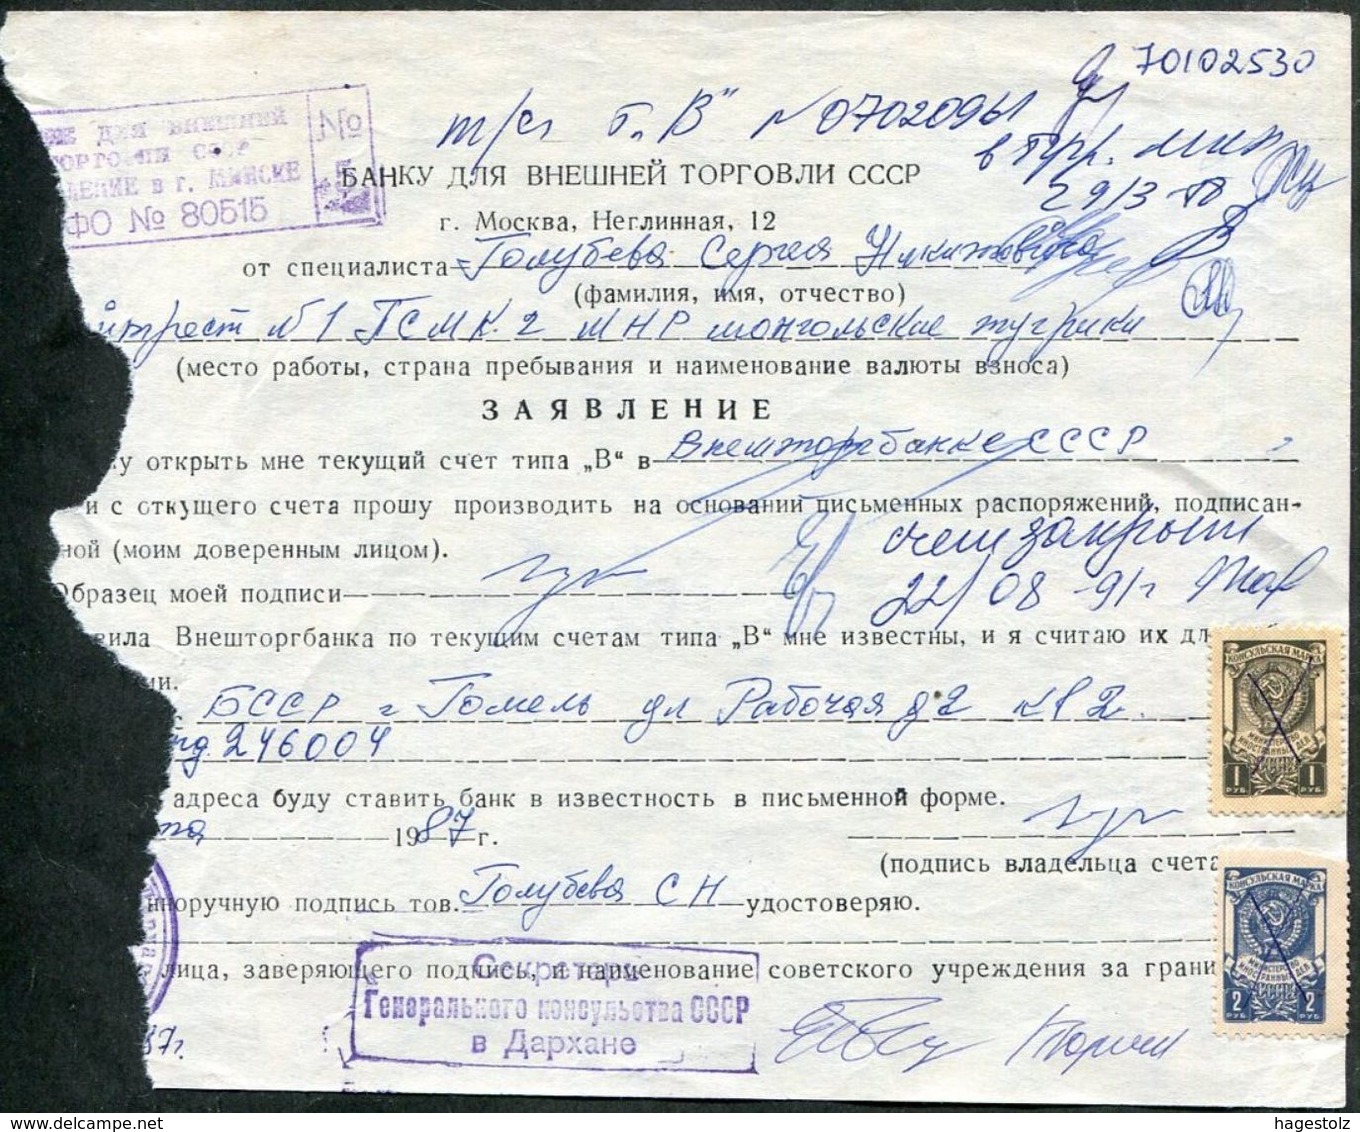 70102530
т/сч "В" № 0702091
в Терр.
29/3
ДЛЯ ВНЕШНЕЙ
ТОРГОВЛИ СССР
В г. МИНСКЕ
ФО № 80515
№
БАНКУ ДЛЯ ВНЕШНЕЙ ТОРГОВЛИ СССР
г. Москва, Неглинная, 12
от специалиста Голубева Сергея Никитовича
(фамилия, имя, отчество)
трест №1 ПСМК-2 МНР монгольские тугрики
(место работы, страна пребывания и наименование валюты взноса)
ЗАЯВЛЕНИЕ
у открыть мне текущий счет типа „В“ в Внешторгбанке СССР
и с откущего счета прошу производить на основании письменных распоряжений, подписан-
ной (моим доверенным лицом).
счет закрыт
22/08-91г
Образец моей подписи
вила Внешторгбанка по текущим счетам типа „В“ мне известны, и я считаю их дл
ми.
БССР г Гомель ул Рабочая д 2 кв 2
инд. 246004
адреса буду ставить банк в известность в письменной форме.
та 1987 г.
(подпись владельца счета
нноручную подпись тов. Голубева С Н удостоверяю.
лица, заверяющего подпись, и наименование советского учреждения за грани
Секретарь
Генерального консульства СССР
в Дархане
87г.
КОНСУЛЬСКАЯ МАРКА
МИНИСТЕРСТВО
ИНОСТРАННЫХ ДЕЛ
СССР
1 РУБ. 1 РУБ.
КОНСУЛЬСКАЯ МАРКА
МИНИСТЕРСТВО
ИНОСТРАННЫХ ДЕЛ
СССР
2 РУБ. 2 РУБ.
www.delcampe.net
hagestolz